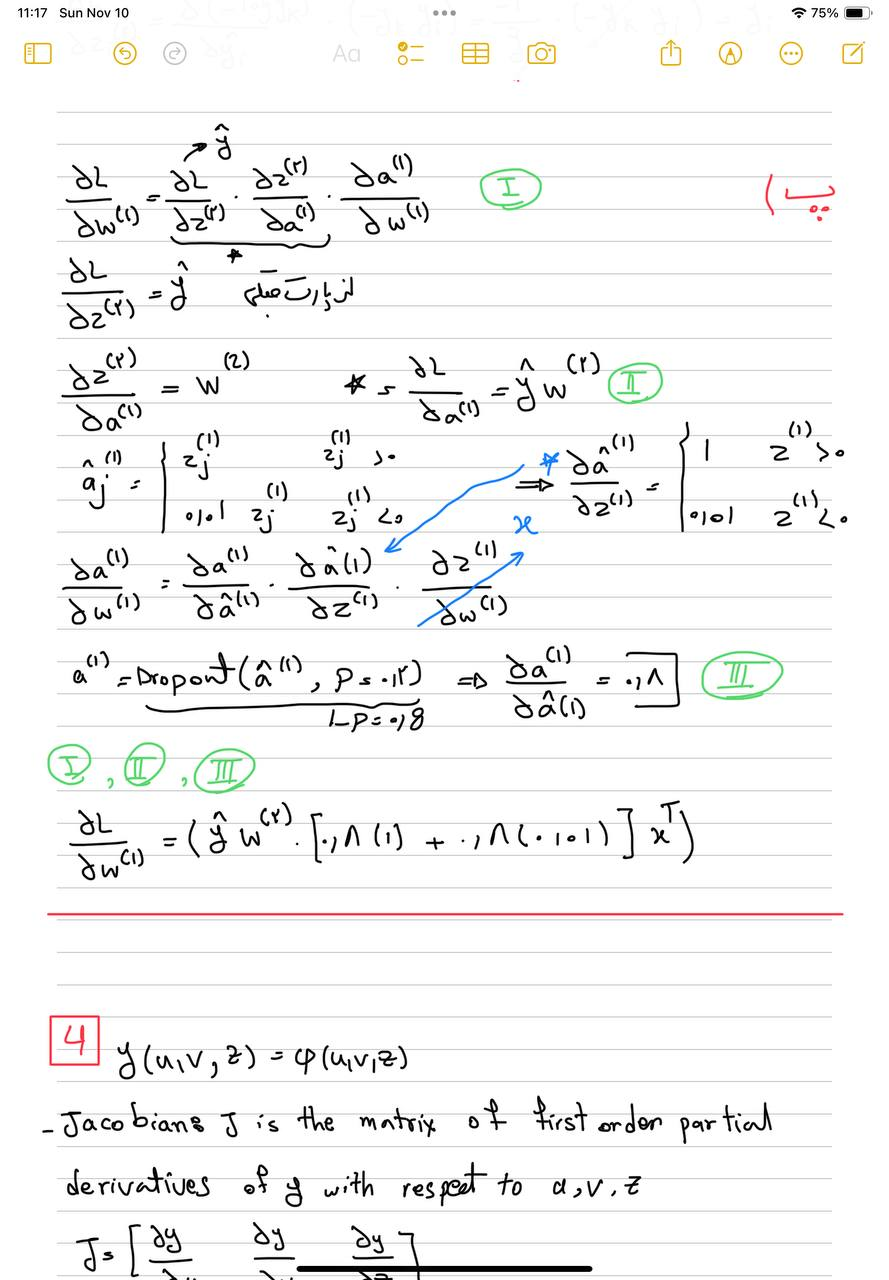 11:17 Sun Nov 10
75%
Aa
∂L/∂w⁽¹⁾ = ∂L/∂z⁽²⁾ → ŷ · ∂z⁽²⁾/∂a⁽¹⁾ · ∂a⁽¹⁾/∂w⁽¹⁾ I
ب)
*
∂L/∂z⁽²⁾ = ŷ از پارت قبلی
∂z⁽²⁾/∂a⁽¹⁾ = w⁽²⁾ * = ∂L/∂a⁽¹⁾ = ŷ w⁽²⁾ II
âj⁽¹⁾ = { zj⁽¹⁾ zj⁽¹⁾ >۰ ⇒ * ∂â⁽¹⁾/∂z⁽¹⁾ = { 1 z⁽¹⁾ >۰
۰/۰۱ zj⁽¹⁾ zj⁽¹⁾ <۰ ۰/۰۱ z⁽¹⁾ <۰
x
∂a⁽¹⁾/∂w⁽¹⁾ = ∂a⁽¹⁾/∂â⁽¹⁾ · ∂â(1)/∂z⁽¹⁾ · ∂z⁽¹⁾/∂w⁽¹⁾
a⁽¹⁾ = Dropout(â⁽¹⁾, P = ۰,۲) ⇒ ∂a⁽¹⁾/∂â(1) = ۰,۸ III
1-p = ۰,8
I , II , III
∂L/∂w⁽¹⁾ = (ŷ w⁽²⁾ · [۰,۸ (1) + ۰,۸ (۰,۰۱)] xᵀ)
4 y(u,v,z) = φ(u,v,z)
- Jacobians J is the matrix of first order partial
derivatives of y with respect to u,v,z
J = [∂y ∂y ∂y]